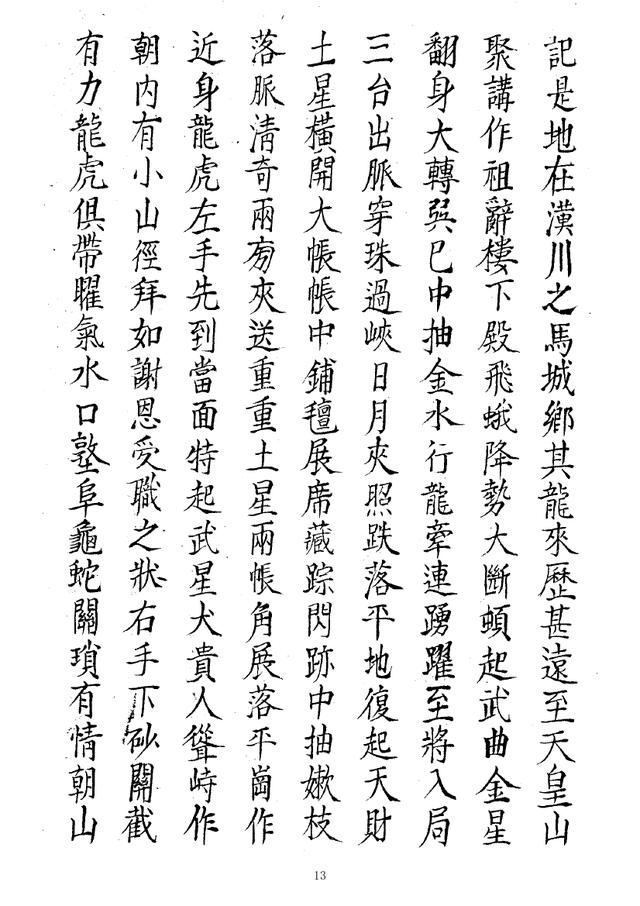 記是地在漢川之馬城鄉其龍來歷甚遠至天皇山
聚講作祖辭樓下殿飛蛾降勢大斷頓起武曲金星
翻身大轉巽巳中抽金水行龍牽連踴躍至將入局
三台出脈穿珠過峽日月夾照跌落平地復起天財
土星橫開大帳帳中鋪氊展席藏踪閃跡中抽嫩枝
落脈清奇兩旁夾送重重土星兩帳角展落平崗作
近身龍虎左手先到當面特起武星犬貴人聳峙作
朝內有小山徑拜如謝恩受職之狀右手下砂關截
有力龍虎俱帶曜氣水口墪阜龜蛇關瑣有情朝山
13